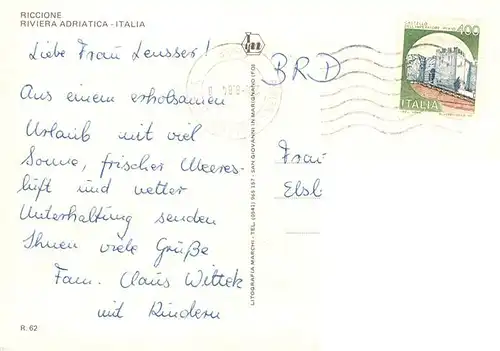 RICCIONE
RIVIERA ADRIATICA - ITALIA
Liebe Frau Leusser!
Aus einem erholsamen
Urlaub mit viel
Sonne, frischer Meeres-
luft und netter
Unterhaltung senden
Ihnen viele Grüße
Fam. Claus Wittek
mit Kindern
R. 62
LITOGRAFIA MARCHI - TEL. (0541) 965 257 - SAN GIOVANNI IN MARIGNANO (FO)
BRD
400
ITALIA
Frau
Elsb